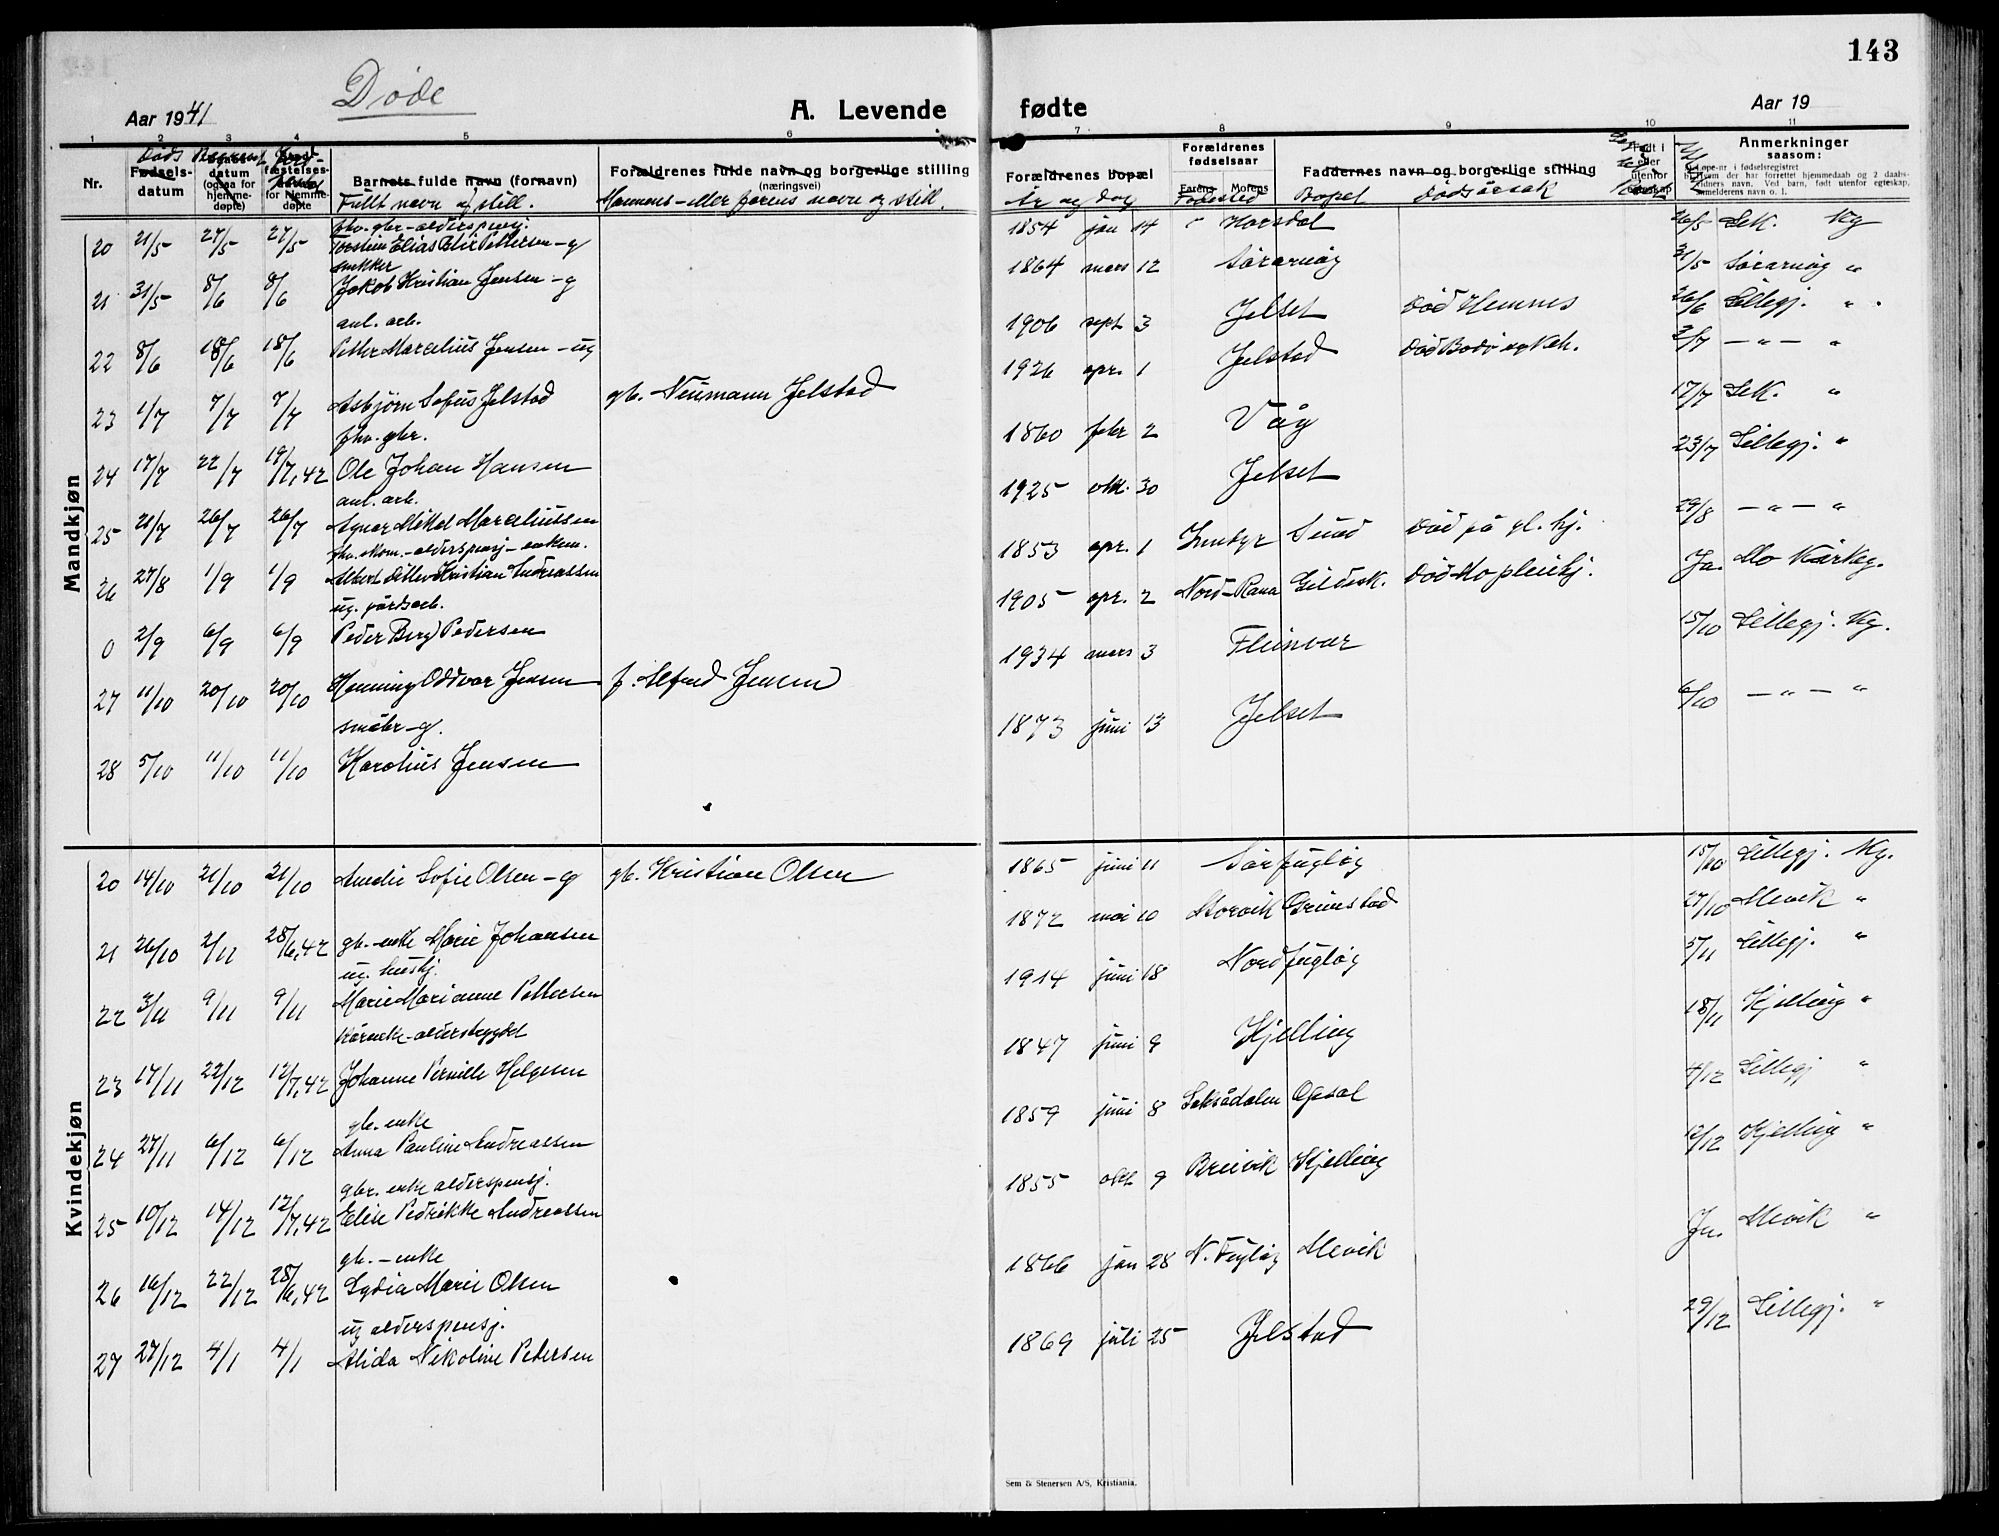 143
Døde
Aar 1941
A. Levende
fødte
Aar 19
1 2 3 4 5 6 7 8 9 10 11
Nr.
Døds
Fødsels-
datum
datum
(ogsaa for
hjemme-
døpte)
for hjemme-
døpte
Barnets fulde navn (fornavn)
Fullt navn og still.
Forældrenes fulde navn og borgerlige stilling
(næringsvei)
Mannens - eller farens navn og still.
Forældrenes bopæl
År og dag
Forældrenes
fødselsaar
Farens Morens
Fødested
Faddernes navn og borgerlige stilling
Bopel Dødsårsak
Født i
eller
utenfor
Anmerkninger
saasom:
Mandkjøn
fhv. gbr. - alderspensj.
20 21/5 27/5 27/5 Torstein Elias Blix Pettersen - g 1854 jan 14 Horsdal 26/5 Lek. Kg
snekker
21 31/5 8/6 8/6 Jakob Kristian Jensen - g 1864 mars 12 Sørarnøy 31/5 Sørarnøy "
anl. arb.
22 8/6 18/6 18/6 Petter Marcelius Jensen - ug 1906 sept 3 Jelset Død Hemnes 26/6 Lillegj. "
23 1/7 7/7 7/7 Asbjørn Sofus Jelstad gb. Neumann Jelstad 1926 apr. 1 Jelstad Død Bodø sykeh. 2/7 - " - "
fhv. gbr.
24 17/7 22/7 19/7, 42 Ole Johan Hansen 1860 febr 2 Våg 17/7 Lek. "
anl. arb.
25 21/7 26/7 26/7 Agnar Mikal Marceliussen 1925 okt. 30 Jelset 23/7 Lillegj. "
fhv. skom. - alderspensj - enkem.
26 27/8 1/9 1/9 Albert Ditlev Kristian Andreassen 1853 apr. 1 Inndyr Sund Død på gl. hj. 29/8 - " - "
ug. jordarb.
0 2/9 6/9 6/9 Peder Berg Pedersen 1905 apr. 2 Nord-Rana Gildesk. Død Mo pleiehj. Ja. Mo Kirkeg.
27 11/10 20/10 20/10 Henning Oddvar Jensen f. Alfred Jensen 1934 mars 3 Fleinvær 15/10 Lillegj. Kg.
småbr - g.
28 5/10 11/10 11/10 Karolius Jensen 1873 juni 13 Jelset 6/10 - " - "
Kvindekjøn
20 14/10 21/10 21/10 Amalie Sofie Olsen - g gb. Kristian Olsen 1865 juni 11 Sørfugløy 15/10 Lillegj. Kg.
21 26/10 2/11 28/6, 42 gb. - enke Marie Johansen 1872 mai 10 Storvik Grimstad 27/10 Mevik "
ug. hushj.
22 3/11 9/11 9/11 Marie Marianne Pettersen 1914 juni 18 Nordfugløy 5/11 Lillegj. "
Kårenke - alderstrygdet
23 17/11 22/12 12/7, 42 Johanne Pernille Helgesen 1847 juni 9 Kjelling 18/11 Kjelling "
gb. enke
24 27/11 6/12 6/12 Anna Pauline Andreassen 1859 juni 8 Laksådalen Opsal 4/12 Lillegj "
gbr. enke alderspensj.
25 10/12 14/12 12/7, 42 Elise Pedrikke Andreassen 1855 okt. 9 Breivik Kjelling 12/12 Kjelling "
gb. - enke
26 16/12 22/12 28/6, 42 Lydia Marie Olsen 1866 jan 28 N. Fugløy Mevik Ja. Mevik "
ug alderspensj.
27 27/12 4/1 4/1 Alida Nikoline Petersen 1869 juli 25 Jelstad 29/12 Lillegj. "
Sem & Stenersen A/S, Kristiania.